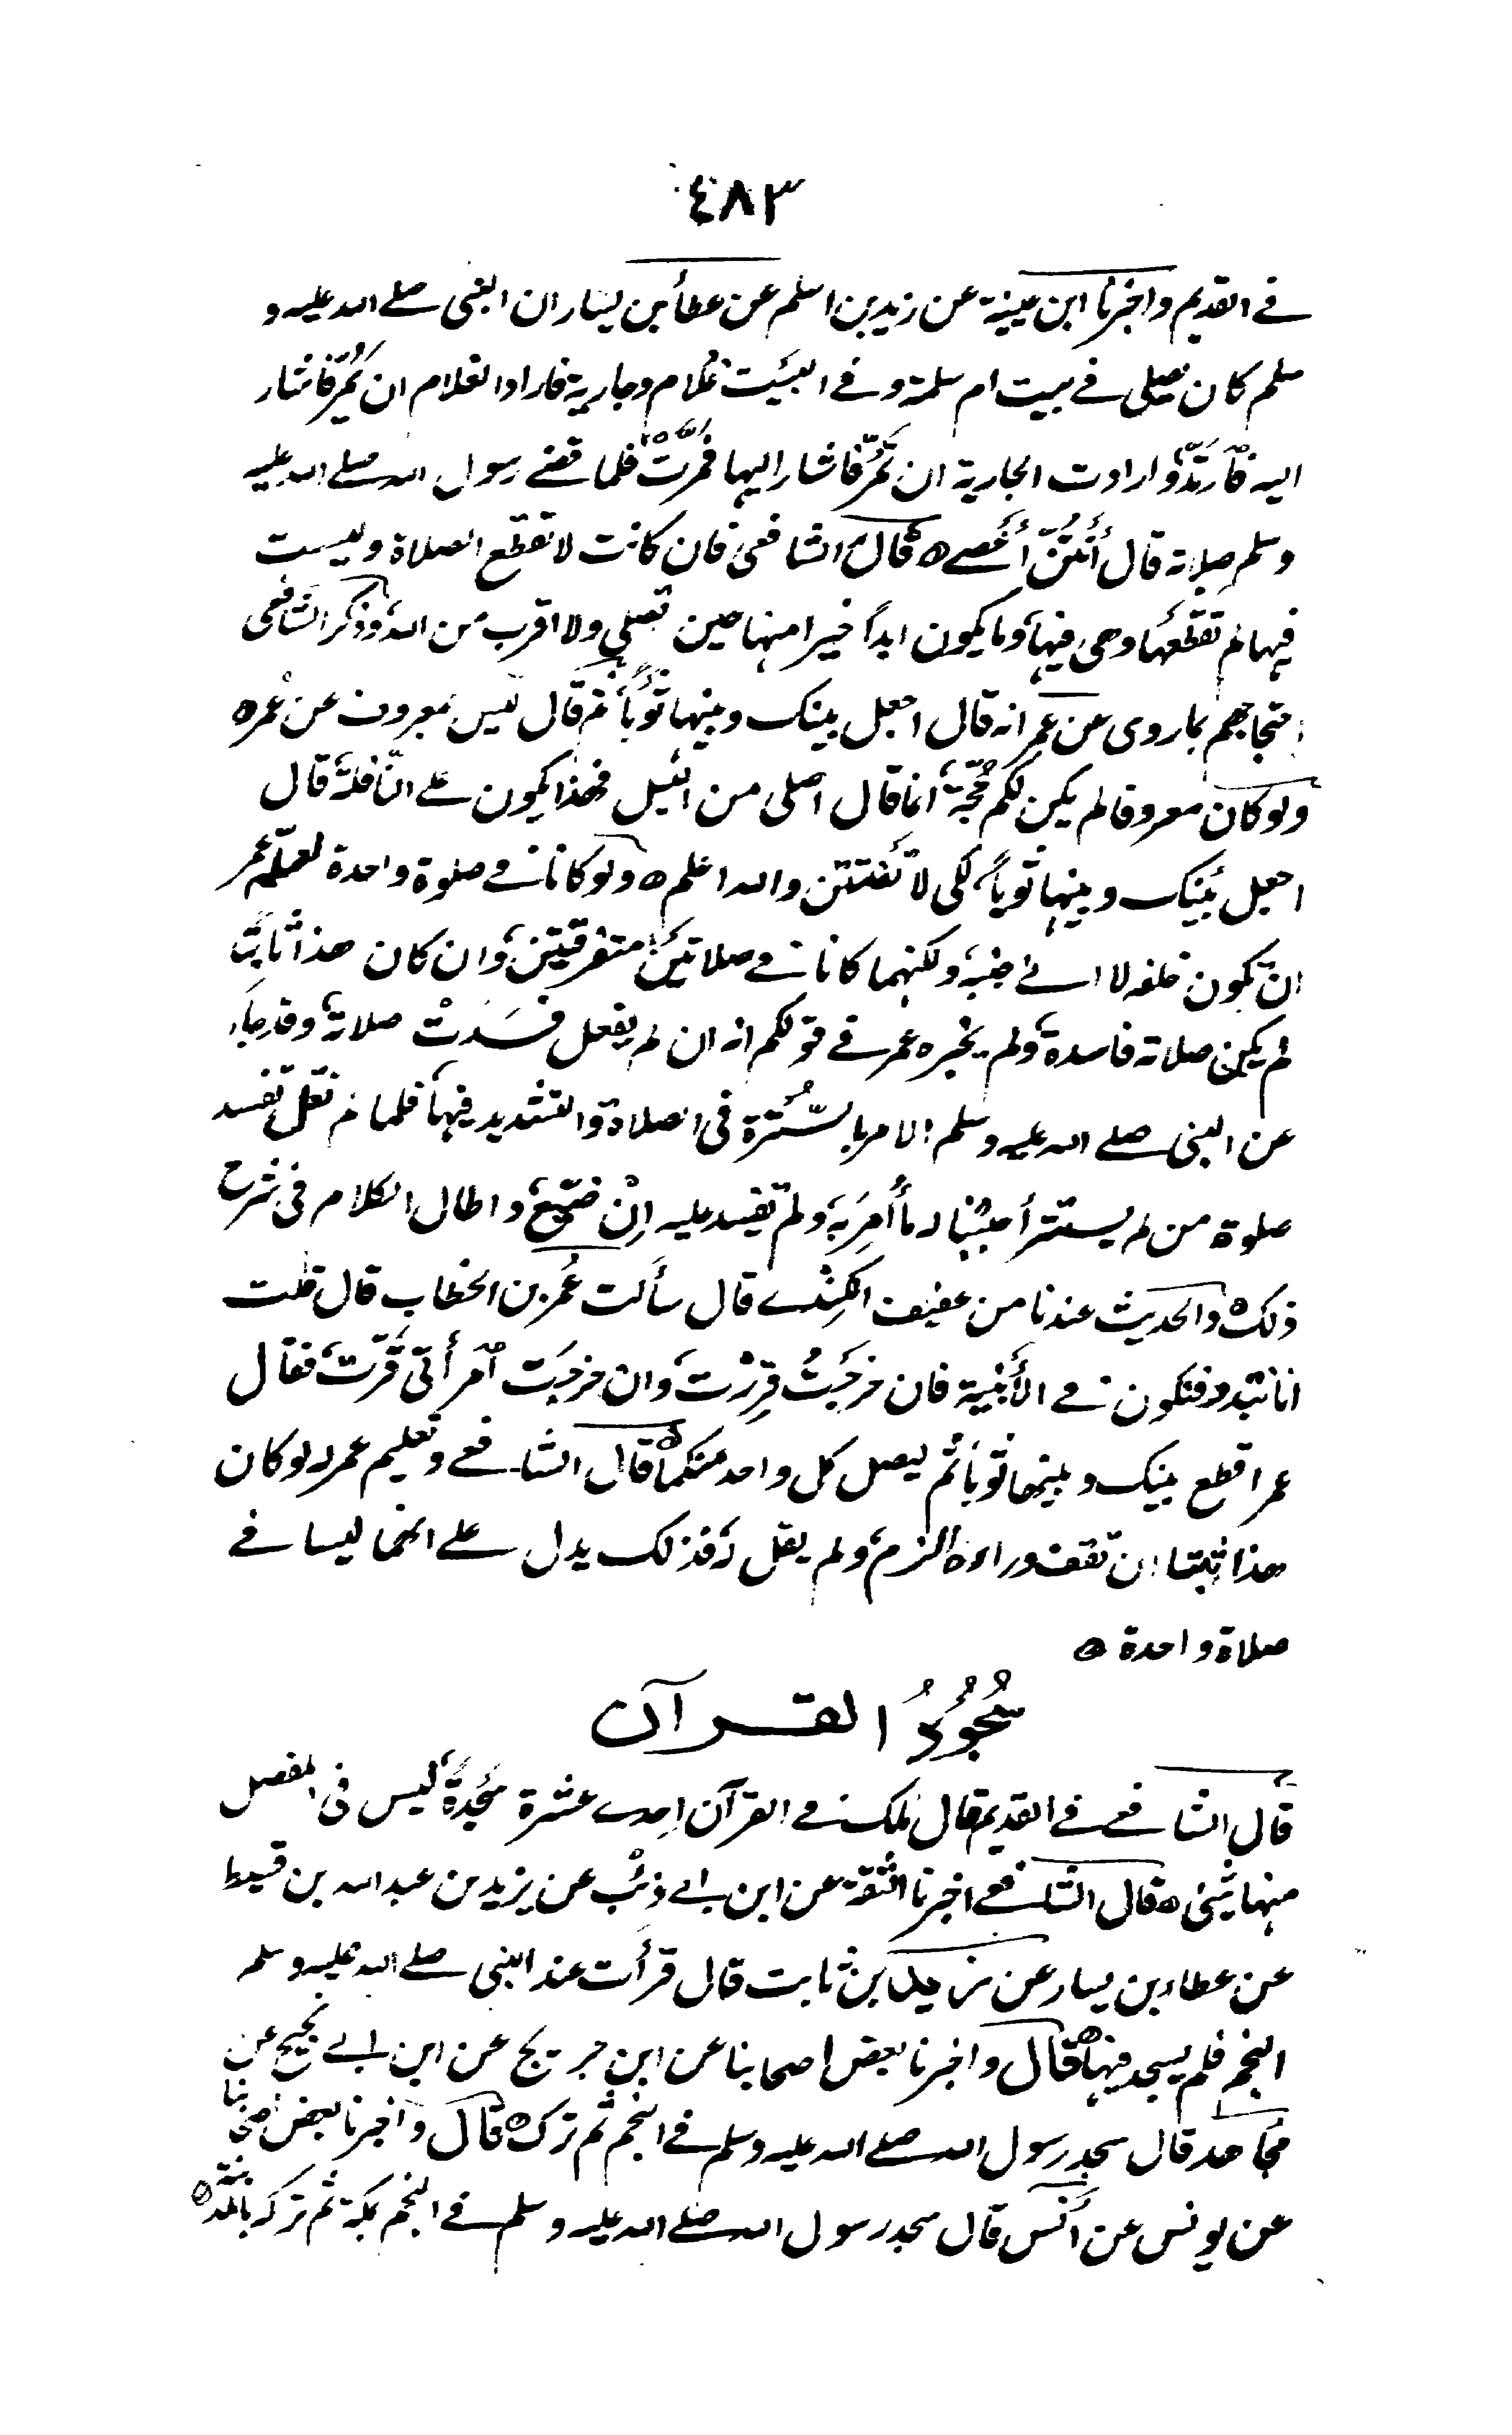 ٤٨٣
في القديم واخبرنا ابن عيينة عن زيد بن اسلم عن عطأ بن يسار ان النبي صلى الله عليه و
سلم كان يصلي في بيت ام سلمة وفي البيت غلام وجارية فاراد الغلام ان يمر فاشار
اليه فارتد وارادت الجارية ان تمر فاشار اليها فمرت فلما قضى رسول الله صلى الله عليه
وسلم صلاته قال أنتن أعصى ٥ قال الشافعي فان كانت لا تقطع الصلاة وليست
فيها لم تقطعها وهي فيها وما يكون ابداً خيرا منها حين تصلي ولا اقرب من الله وذكر الشافعي
احتجاجهم بما روى عن عمر انه قال اجعل بينك وبينها ثوباً ثم قال ليس بمعروف عن عمر ٥
ولو كان معروفا لم يكن لكم حجة انما قال اصلي من الليل فهذا يكون على النافلة قال
اجعل بينك وبينها ثوباً لكي لا تفتتن والله اعلم ٥ ولو كانا في صلوة واحدة لعلّم عمر
ان تكون خلفه لا الى جنبه ولكنهما كانا في صلاتين متفرقتين وان كان هذا ثابتا
لم يكن صلاته فاسدة ولم يخبره عمر في قولكم انه ان لم يفعل فسدت صلاته وقد جاء
عن النبي صلى الله عليه وسلم الامر بالسترة في الصلاة والتشديد فيها فلما لم نقل تفسد
صلوة من لم يستتر أجبنا له ما أمر به ولم تفسد عليه ان ضيّع واطال الكلام في شرح
ذلك والحديث عندنا من عفيف الكندي قال سألت عمر بن الخطاب قال قلت
انا نبدو فنكون في الأبنية فان خرجتُ قررت وان خرجت امرأتي قرّت فقال
عمر اقطع بينك وبينها ثوبا ثم ليصل كل واحد منكما ٥ قال الشافعي وتعليم عمر له لو كان
هذا ثبتا ان تقف وراءه الزم ولم يقل له فذلك يدل على انهما ليسا في
صلاة واحدة ٥
سُجُودُ القرآن
قال الشافعي في القديم قال ملك في القرآن احدى عشرة سجدة ليس في المفصل
منها شئ ٥ قال الشافعي اخبرنا الثقة عن ابن ابي ذئب عن يزيد بن عبد الله بن قسيط
عن عطاء بن يسار عن زيد بن ثابت قال قرأت عند النبي صلى الله عليه وسلم
النجم فلم يسجد فيها ٥ قال واخبرنا بعض اصحابنا عن ابن جريج عن ابن ابي نجيح عن
مجاهد قال سجد رسول الله صلى الله عليه وسلم في النجم ثم ترك ٥ قال واخبرنا بعض اصحابنا
عن يونس عن أنس قال سجد رسول الله صلى الله عليه وسلم في النجم بمكة ثم تركه بالمدينة ٥